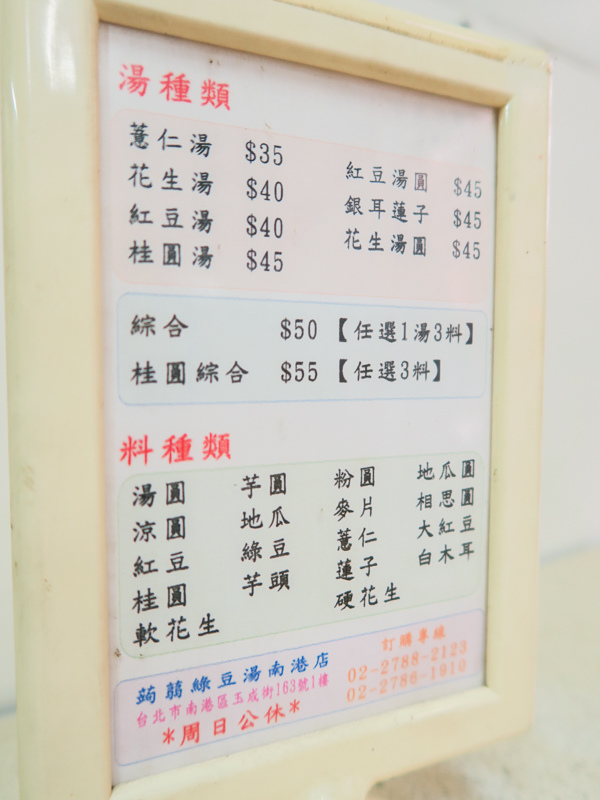 湯種類
薏仁湯 $35
花生湯 $40
紅豆湯 $40
桂圓湯 $45
紅豆湯圓 $45
銀耳蓮子 $45
花生湯圓 $45
綜合 $50 【任選1湯3料】
桂圓綜合 $55 【任選3料】
料種類
湯圓 芋圓 粉圓 地瓜圓
涼圓 地瓜 麥片 相思圓
紅豆 綠豆 薏仁 大紅豆
桂圓 芋頭 蓮子 白木耳
軟花生 硬花生
蒟蒻綠豆湯南港店
台北市南港區玉成街163號1樓
*周日公休*
訂購專線
02-2788-2123
02-2786-1910